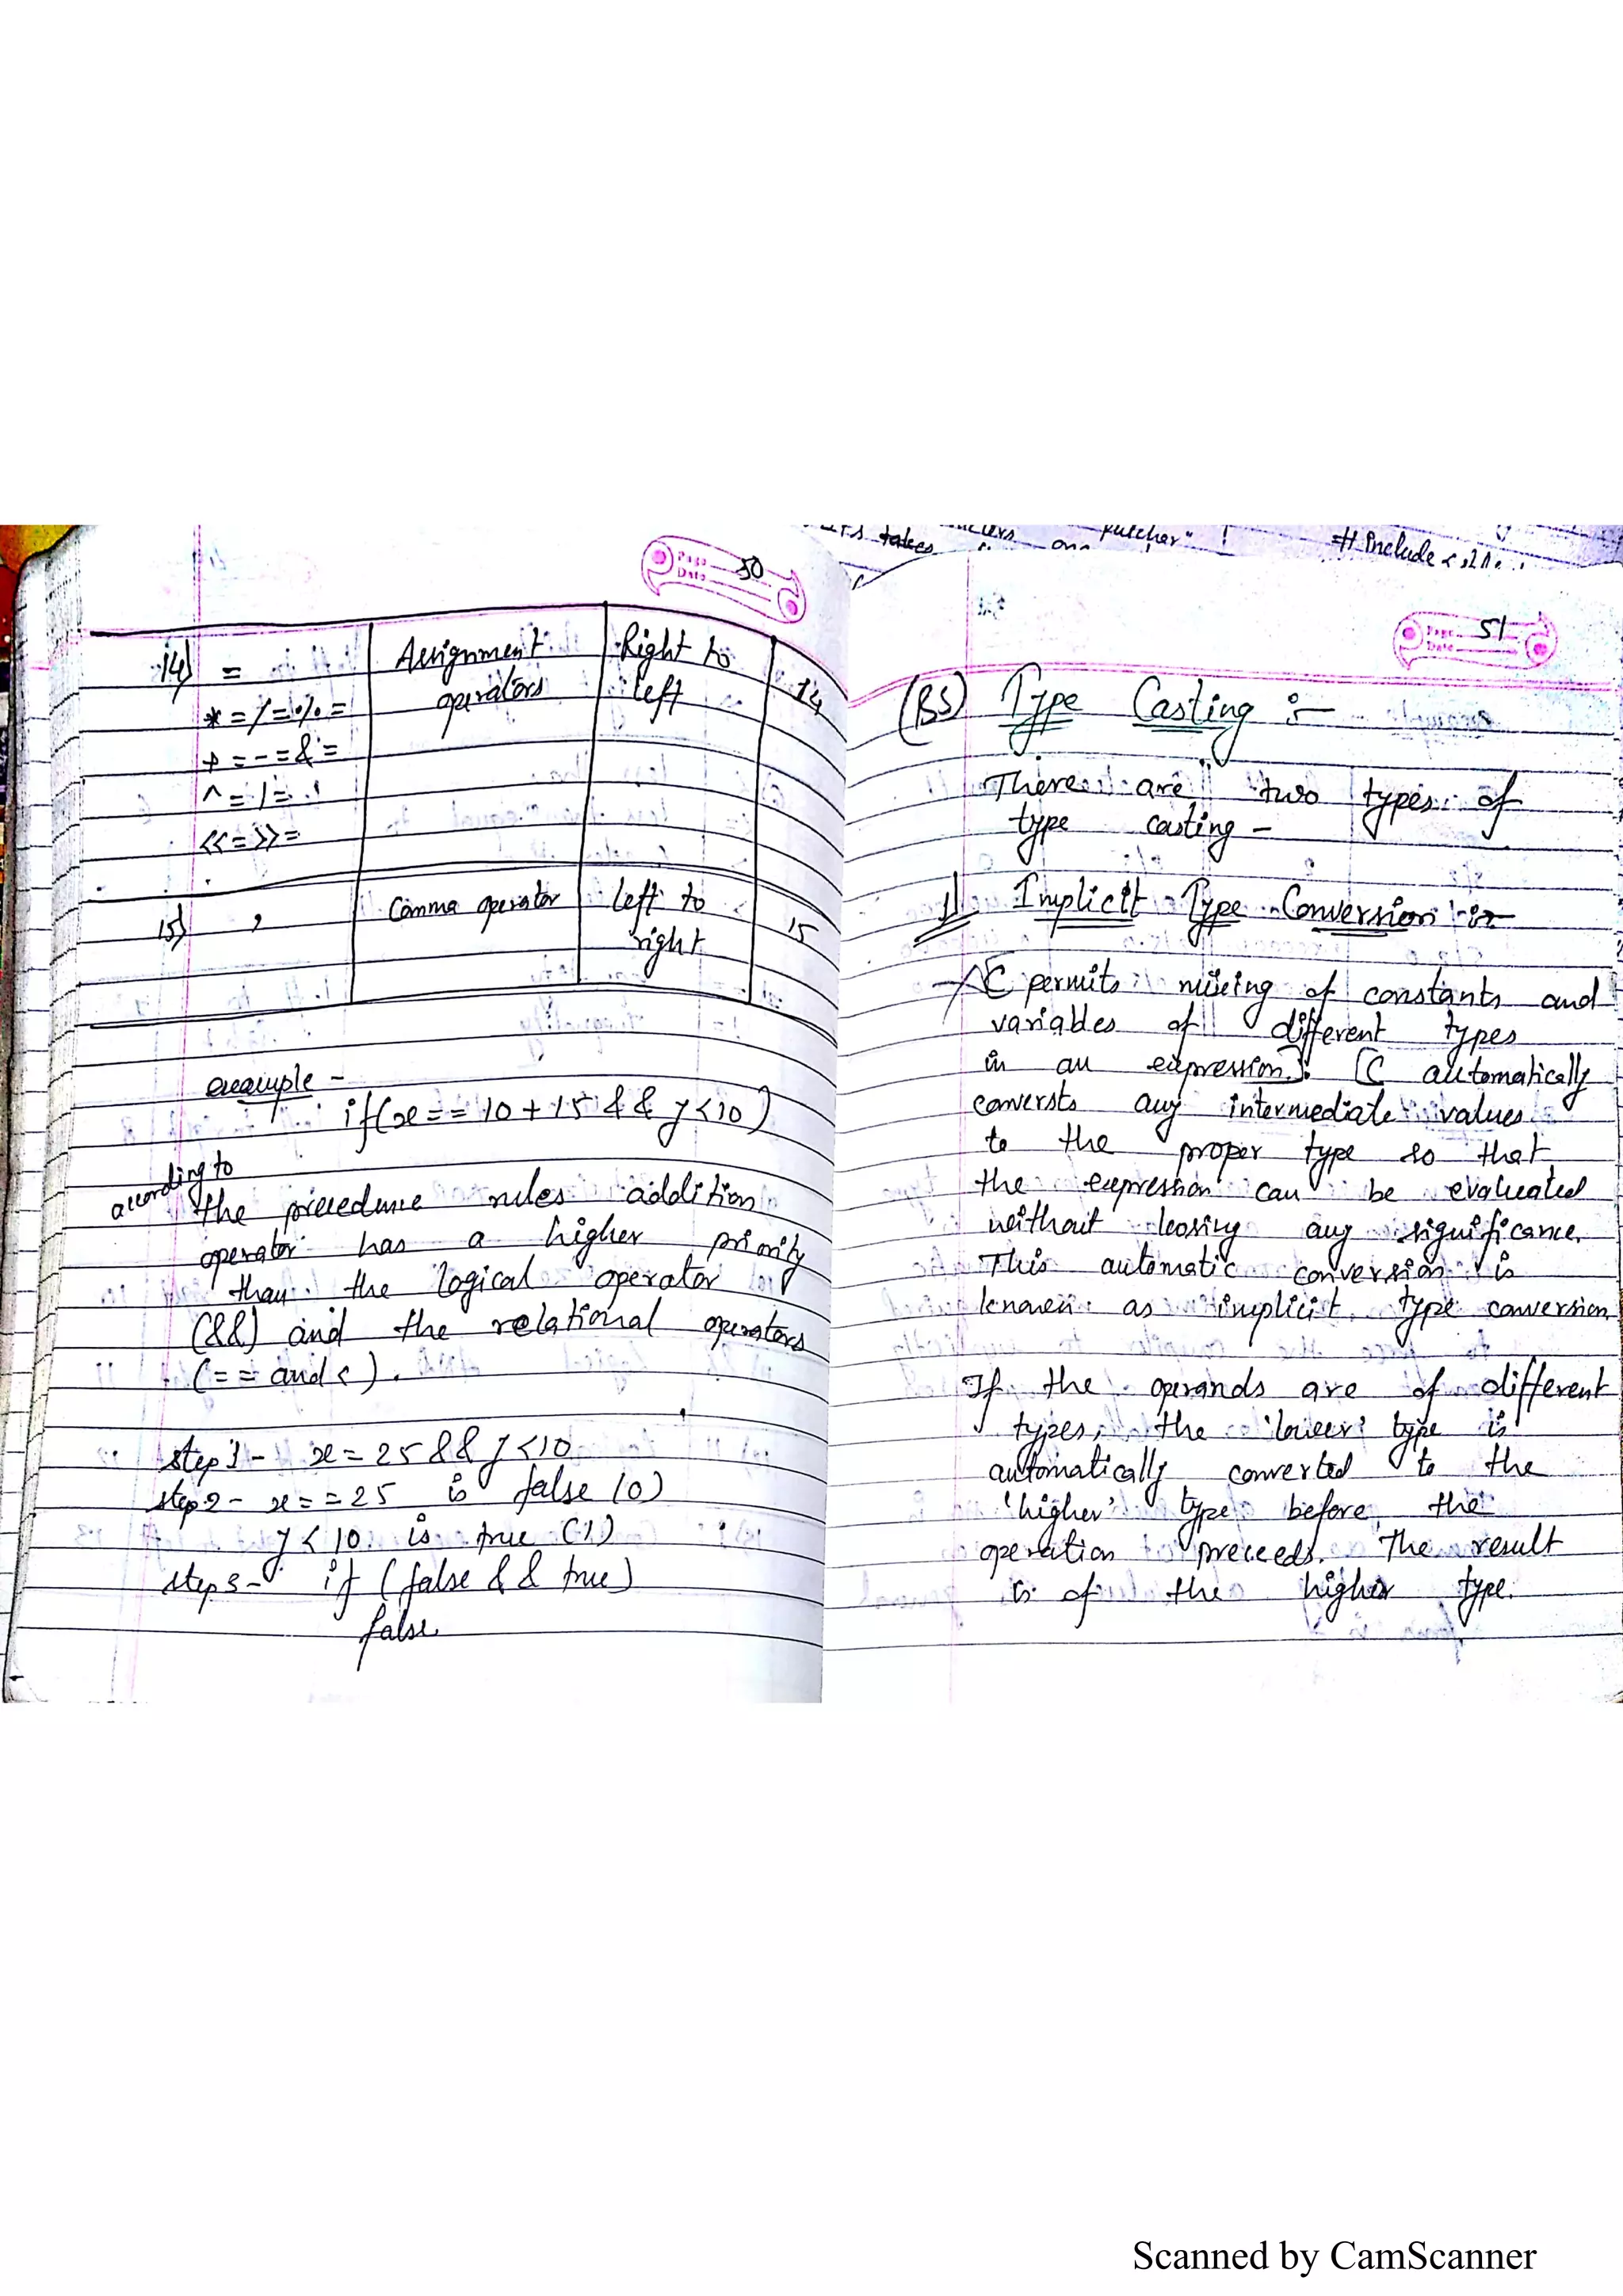 Page 50
Date
14) = Assignment Right to 14
*= /= %= operators left
+= -= &=
^= |=
<<= >>=
15) , Comma operator left to 15
right
example -
if(x == 10 + 15 && y<10)
according to
the precedence rules addition
operator has a higher priority
than the logical operator
(&&) and the relational operators
(== and <).
step 1 - x = 25 && y<10
step 2 - x == 25 is false (0)
y < 10 is true (1)
step 3 - if (false && true)
false.
takes
#include <
Page 51
Date
(B5) Type Casting :-
There are two types of
type casting -
1) Implicit Type Conversion :-
C permits mixing of constants and
variables of different types
in an expression. C automatically
conversts any intermediate values
to the proper type so that
the expression can be evaluated
without loosing any significance.
This automatic conversion is
known as implicit type conversion.
If the operands are of different
types, the 'lower' type is
automatically converted to the
'higher' type before the
operation preceeds. The result
is of the higher type.
Scanned by CamScanner